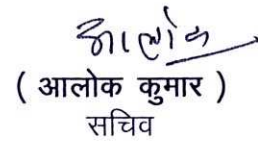 आलोक
( आलोक कुमार )
सचिव